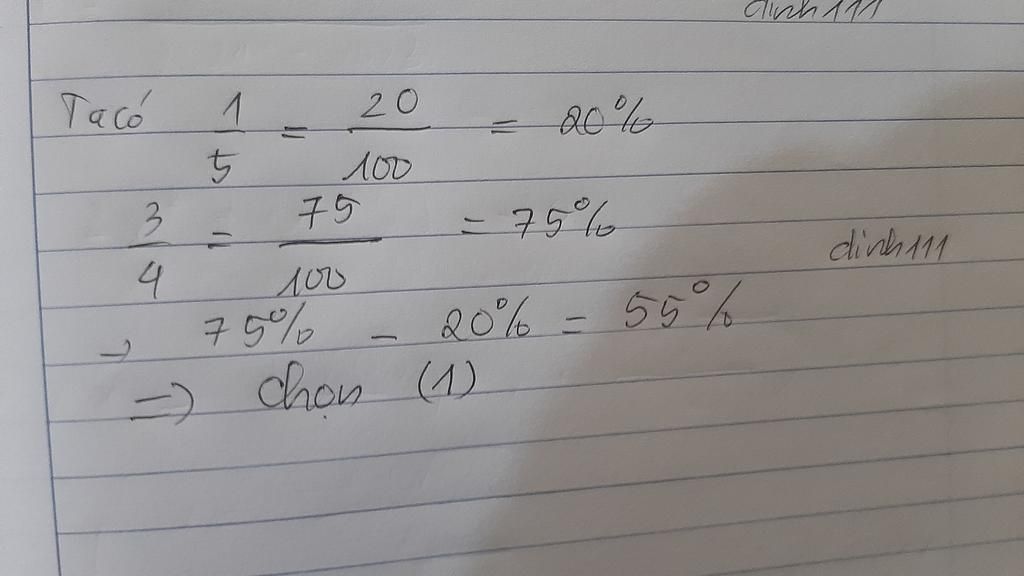 dinh111
Ta có 1/5 = 20/100 = 20%
3/4 = 75/100 = 75%
dinh111
→ 75% - 20% = 55%
=> chọn (1)